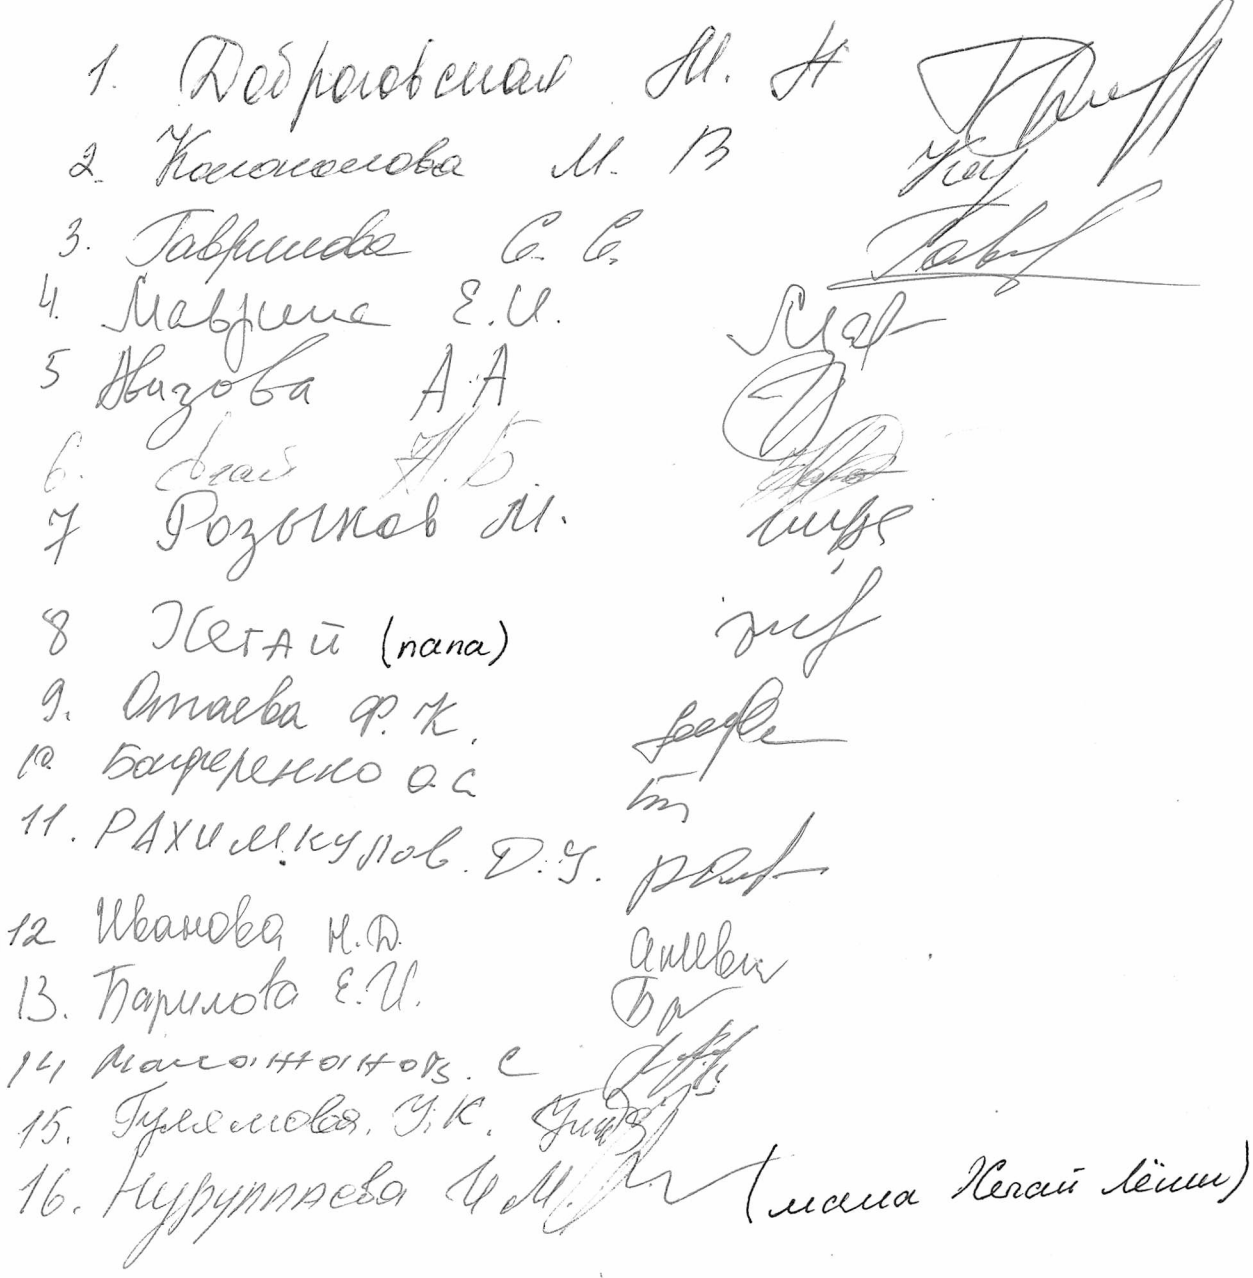 1. Доброговская М. Н
2. Колоколова М. В
3. Гаврилова С. С.
4. Маврина Е.И.
5 Авизова А А
6. Н.Б.
7 Розыков М.
8 Хегай (папа)
9. Отаева Ф.К.
10 Бондаренко О.С
11. РАХИМКУЛОВ. Д.У.
12 Иванова Н.Д.
13. Барилова Е.И.
14 С
15. Гулямова. У.К.
16. Нуруллаева И М. (мама Хегай Лёши)